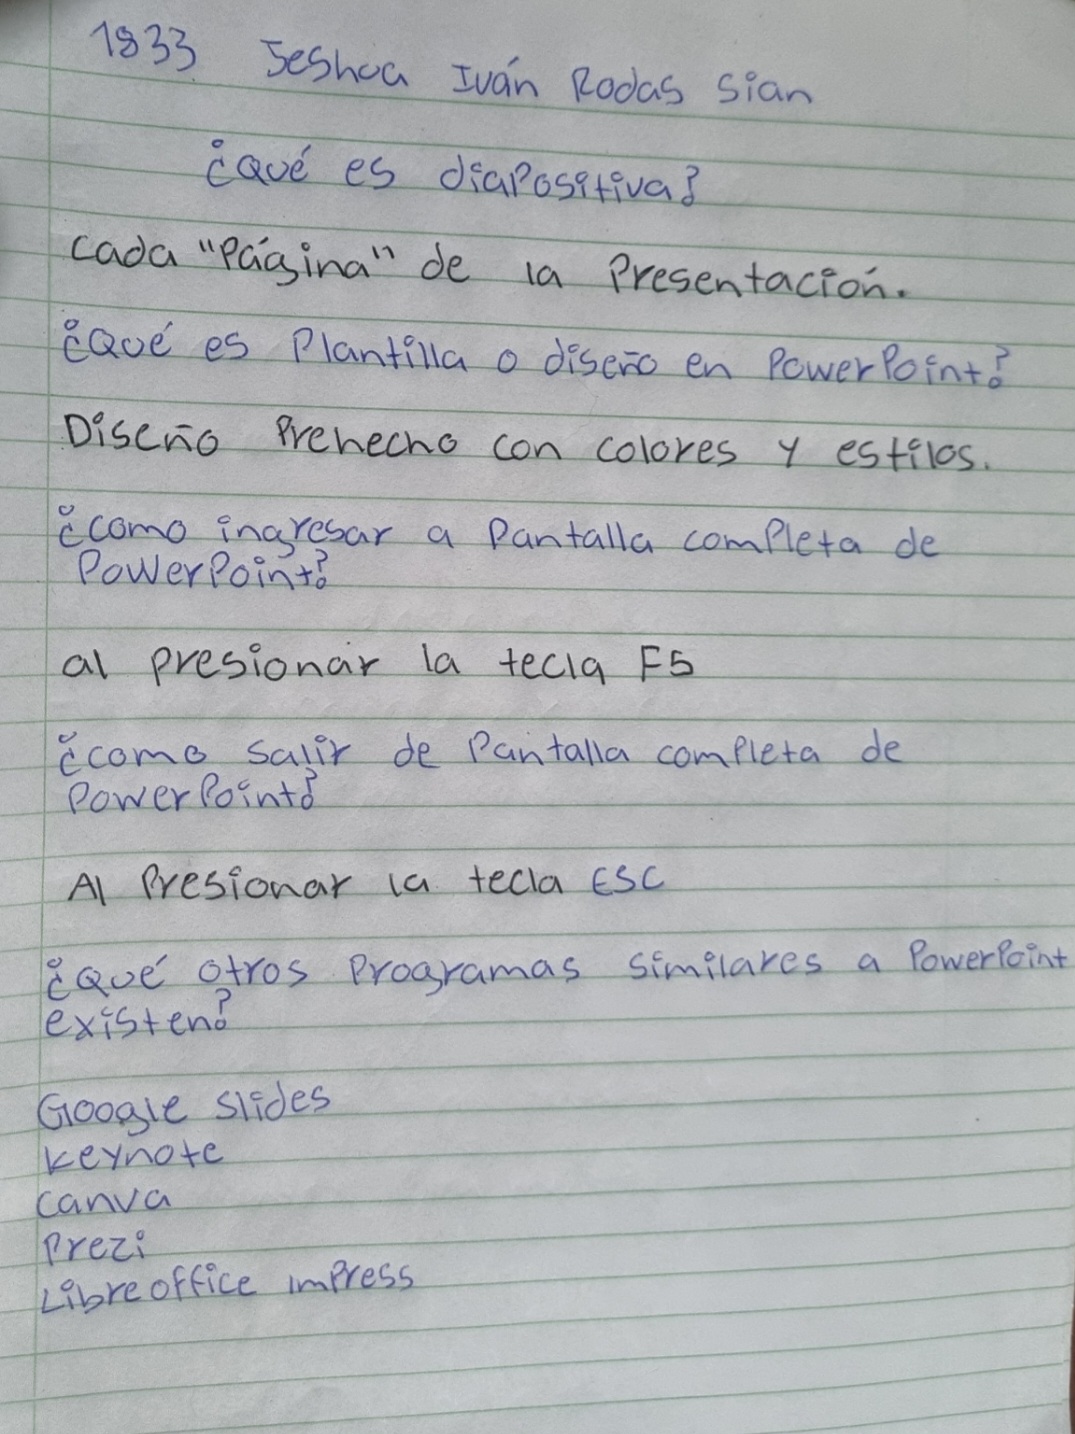 1833 Jeshua Iván Rodas Sian
¿Qué es diapositiva?
Cada "Página" de la Presentación.
¿Qué es Plantilla o diseño en PowerPoint?
Diseño Prehecho con colores y estilos.
¿como ingresar a Pantalla completa de
PowerPoint?
al presionar la tecla F5
¿como salir de Pantalla completa de
PowerPoint?
Al Presionar la tecla ESC
¿Qué otros Programas similares a PowerPoint
existen?
Google Slides
Keynote
Canva
Prezi
Libreoffice imPress